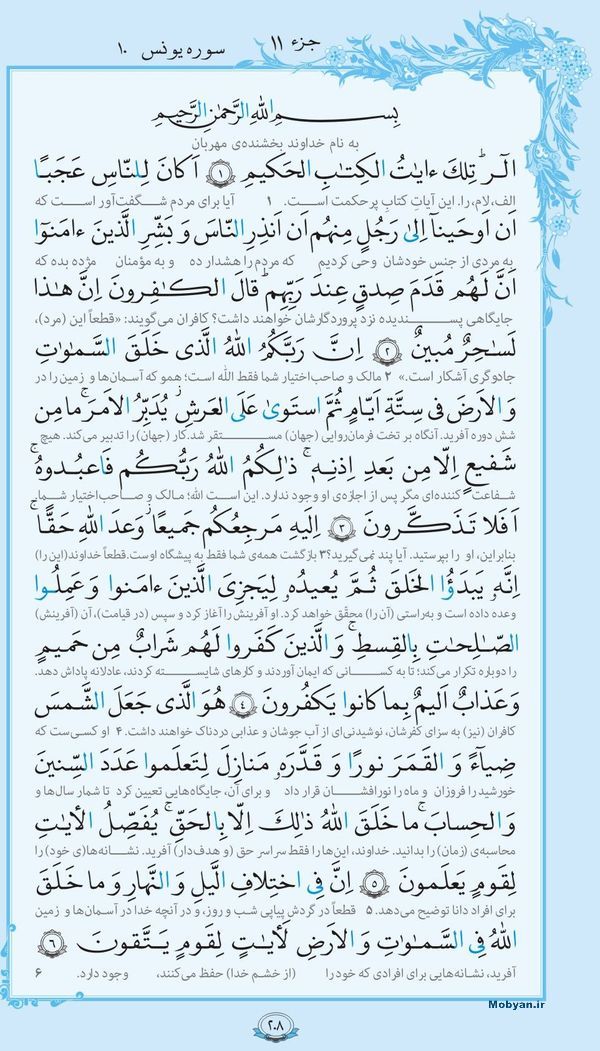 جزء ۱۱
سوره یونس ۱۰
بِسـمِ اللهِ الرَّحمٰنِ الرَّحیـمِ
به نام خداوند بخشنده‌ی مهربان
الٓـرٰ ۚ تِلكَ ءایٰتُ الكِتٰبِ الحَكیمِ ﴿۱﴾ اَكانَ لِلنّاسِ عَجَبًا
الف، لام، را. این آیاتِ کتابِ پرحکمت است. ۱ آیا برای مردم شگفت‌آور است که
اَن اَوحَینآ اِلیٰ رَجُلٍ مِنهُم اَن اَنذِرِ النّاسَ وَ بَشِّرِ الَّذینَ ءامَنوٓا
به مردی از جنس خودشان وحی کردیم که مردم را هشدار ده و به مؤمنان مژده بده که
اَنَّ لَهُم قَدَمَ صِدقٍ عِندَ رَبِّهِم ۗ قالَ الكٰفِرونَ اِنَّ هٰذا
جایگاهی پسندیده نزد پروردگارشان خواهند داشت؟ کافران می‌گویند: «قطعاً این (مرد)،
لَسٰحِرٌ مُبینٌ ﴿۲﴾ اِنَّ رَبَّكُمُ اللهُ الَّذی خَلَقَ السَّمٰوٰتِ
جادوگری آشکار است.» ۲ مالک و صاحب‌اختیار شما فقط الله است؛ همو که آسمان‌ها و زمین را در
وَ الاَرضَ فی سِتَّةِ اَیّامٍ ثُمَّ استَویٰ عَلَی العَرشِ ۖ یُدَبِّرُ الاَمرَ ۖ ما مِن
شش دوره آفرید. آنگاه بر تخت فرمان‌روایی (جهان) مستقر شد. کار (جهان) را تدبیر می‌کند. هیچ
شَفیعٍ اِلّا مِن بَعدِ اِذنِه ۚ ذٰلِكُمُ اللهُ رَبُّكُم فَاعبُدوهُ ۚ
شفاعت کننده‌ای مگر پس از اجازه‌ی او وجود ندارد. این است الله؛ مالک و صاحب‌اختیار شما.
اَفَلا تَذَكَّرونَ ﴿۳﴾ اِلَیهِ مَرجِعُكُم جَمیعًا ۖ وَعدَ اللهِ حَقًّا ۚ
بنابراین، او را بپرستید. آیا پند نمی‌گیرید؟ ۳ بازگشت همه‌ی شما فقط به پیشگاه اوست. قطعاً خداوند (این را)
اِنَّهُ یَبدَؤُا الخَلقَ ثُمَّ یُعیدُهُ لِیَجزِیَ الَّذینَ ءامَنوا وَ عَمِلُوا
وعده داده است و به‌راستی (آن را) محقّق خواهد کرد. او آفرینش را آغاز کرد و سپس (در قیامت)، آن (آفرینش)
الصّٰلِحٰتِ بِالقِسطِ ۚ وَ الَّذینَ كَفَروا لَهُم شَرابٌ مِن حَمیمٍ
را دوباره تکرار می‌کند؛ تا به کسانی که ایمان آوردند و کارهای شایسته کردند، عادلانه پاداش دهد.
وَ عَذابٌ اَلیمٌ بِما كانوا یَكفُرونَ ﴿۴﴾ هُوَ الَّذی جَعَلَ الشَّمسَ
کافران (نیز) به سزای کفرشان، نوشیدنی‌ای از آب جوشان و عذابی دردناک خواهند داشت. ۴ او کسی‌ست که
ضِیآءً وَ القَمَرَ نورًا وَ قَدَّرَهُ مَنازِلَ لِتَعلَموا عَدَدَ السِّنینَ
خورشید را فروزان و ماه را نورافشان قرار داد و برای آن، جایگاه‌هایی تعیین کرد تا شمار سال‌ها و
وَ الحِسابَ ۚ ما خَلَقَ اللهُ ذٰلِكَ اِلّا بِالحَقِّ ۚ یُفَصِّلُ الأیٰتِ
محاسبه‌ی (زمان) را بدانید. خداوند، این‌ها را فقط سراسر حق (و هدف‌دار) آفرید. نشانه‌ها(ی خود) را
لِقَومٍ یَعلَمونَ ﴿۵﴾ اِنَّ فِی اختِلافِ الَّیلِ وَ النَّهارِ وَ ما خَلَقَ
برای افراد دانا توضیح می‌دهد. ۵ قطعاً در گردشِ پیاپیِ شب و روز، و در آنچه خدا در آسمان‌ها و زمین
اللهُ فِی السَّمٰوٰتِ وَ الاَرضِ لَأیٰتٍ لِقَومٍ یَتَّقونَ ﴿۶﴾
آفرید، نشانه‌هایی برای افرادی که خود را (از خشم خدا) حفظ می‌کنند، وجود دارد. ۶
۲۰۸
Mobyan.ir